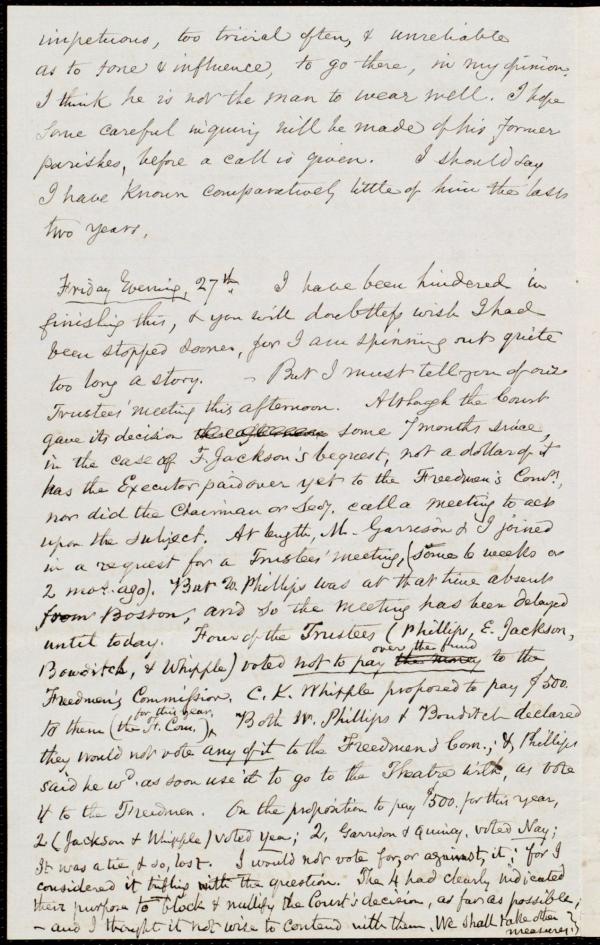 impetuous, too trivial often, & unreliable
as to tone & influence, to go there, in my opinion.
I think he is not the man to wear well. I hope
some careful inquiry will be made of his former
parishes, before a call is given. I should say
I have known comparatively little of him the last
two years.
Friday Evening, 27th. I have been hindered in
finishing this, & you will doubtless wish I had
been stopped sooner, for I am spinning out quite
too long a story. - But I must tell you of our
Trustees' meeting this afternoon. Although the Court
gave its decision this afternoon some 7 months since,
in the case of F. Jackson's bequest, not a dollar of it
has the Executor paid over yet to the Freedmen's Comn.,
nor did the Chairman or Secy. call a meeting to act
upon the subject. At length, Mr. Garrison & I joined
in a request for a Trustees' meeting, (some 6 weeks or
2 mos. ago). But W. Phillips was at that time absent
from Boston, and so the meeting has been delayed
until today. Four of the Trustees (Phillips, E. Jackson,
Bowditch, & Whipple) voted not to pay the money over the fund to the
Freedmen's Commission. C. K. Whipple proposed to pay $500.
to them (the N. Com.) for this year. Both W. Phillips & Bowditch declared
they would not vote any of it to the Freedmen's Com.; & Phillips
said he wd. as soon use it to go to the Theatre with, as vote
it to the Freedmen. On the proposition to pay $500. for this year,
2 (Jackson & Whipple) voted Yea; 2, Garrison & Quincy, voted Nay;
It was a tie, & so, lost. I would not vote for, or against, it; for I
considered it trifling with the question. The 4 had clearly indicated
their purpose to block & nullify the Court's decision, as far as possible;
- and I thought it not wise to contend with them. We shall take other
measures.